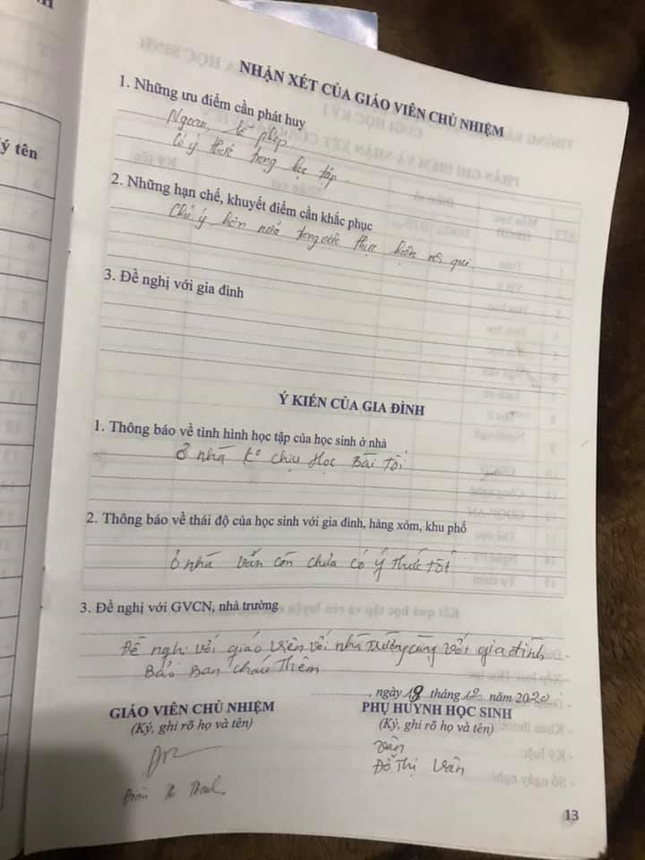 ý tên
NHẬN XÉT CỦA GIÁO VIÊN CHỦ NHIỆM
1. Những ưu điểm cần phát huy
Ngoan, lễ phép
Có ý thức trong học tập
2. Những hạn chế, khuyết điểm cần khắc phục
Chú ý hơn nữa trong việc thực hiện nội qui
3. Đề nghị với gia đình
Ý KIẾN CỦA GIA ĐÌNH
1. Thông báo về tình hình học tập của học sinh ở nhà
ở nhà ko chịu Học Bài Tối
2. Thông báo về thái độ của học sinh với gia đình, hàng xóm, khu phố
ở nhà vẫn còn chưa có ý thức tốt
3. Đề nghị với GVCN, nhà trường
Đề nghị với giáo viên với nhà trường cùng với gia đình
Bảo Ban cháu Thêm
, ngày 18 tháng 12 năm 2020
GIÁO VIÊN CHỦ NHIỆM PHỤ HUYNH HỌC SINH
(Ký, ghi rõ họ và tên) (Ký, ghi rõ họ và tên)
Vân
Đỗ Thị Vân
13